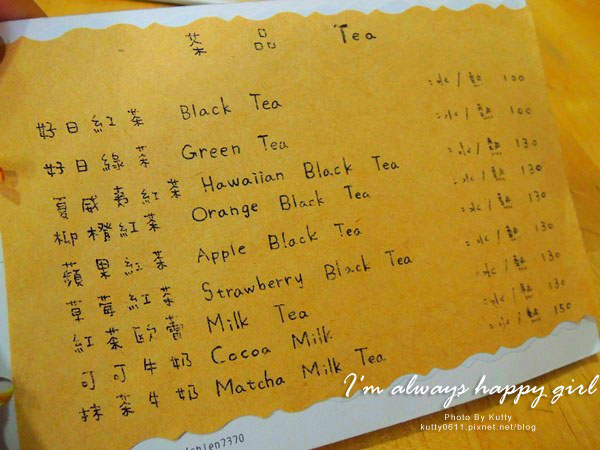 茶品 Tea
好日紅茶 Black Tea 冰/熱 100
好日綠茶 Green Tea 冰/熱 100
夏威夷紅茶 Hawaiian Black Tea 冰/熱 130
柳橙紅茶 Orange Black Tea 冰/熱 130
蘋果紅茶 Apple Black Tea 冰/熱 130
草莓紅茶 Strawberry Black Tea 冰/熱 130
紅茶歐蕾 Milk Tea 冰/熱 130
可可牛奶 Cocoa Milk 冰/熱 130
抹茶牛奶 Matcha Milk Tea 冰/熱 150
I'm always happy girl
Photo By Kutty
kutty0611.pixnet.net/blog